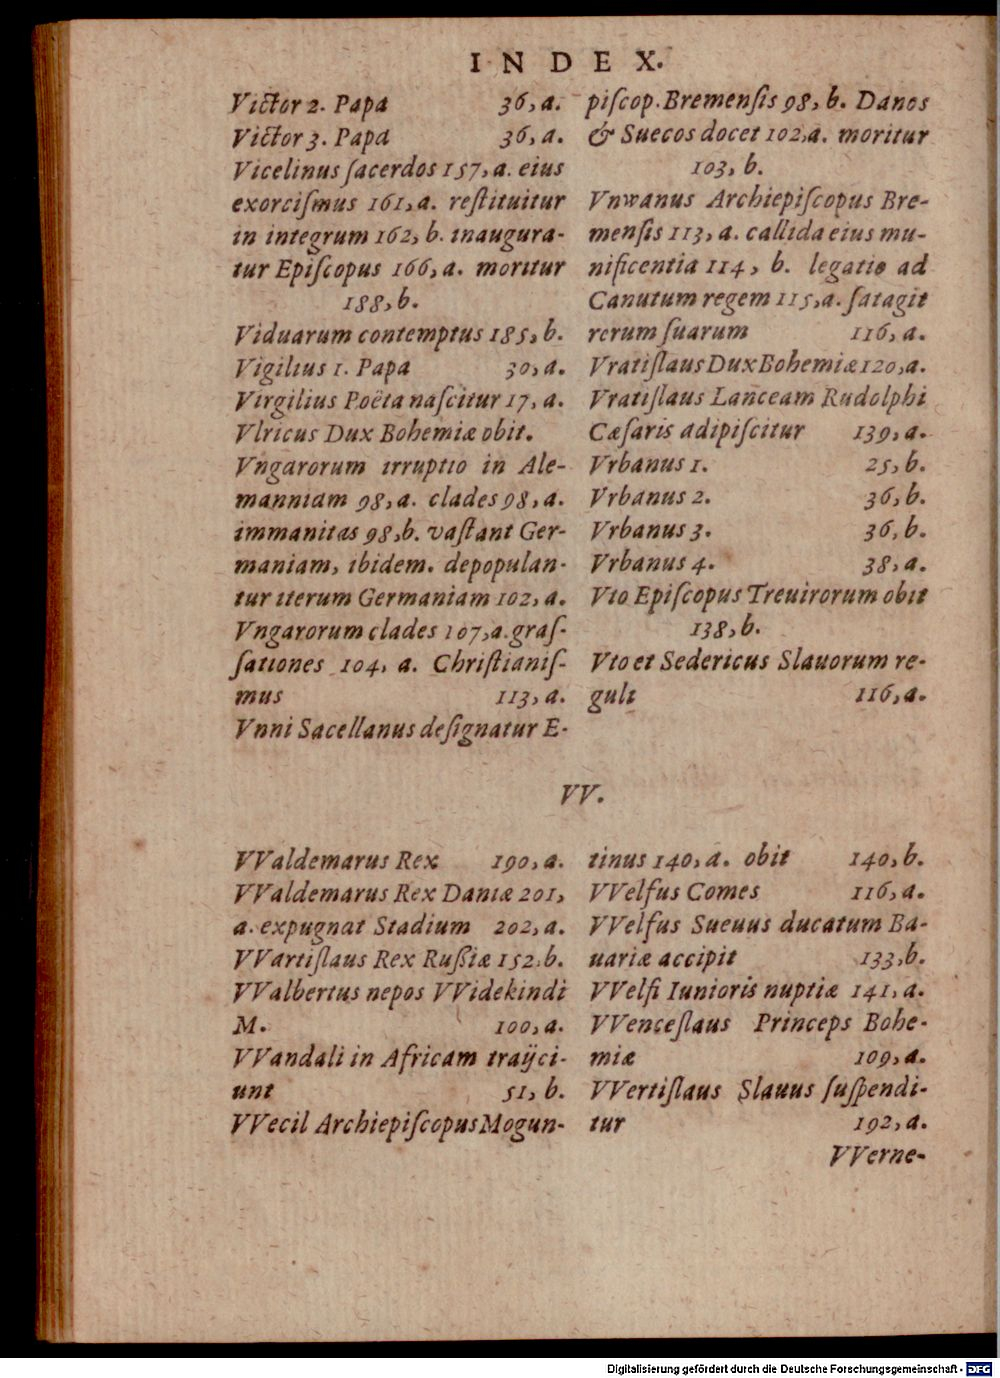 INDEX.
Victor 2. Papa 36, a.
Victor 3. Papa 36, a.
Vicelinus ſacerdos 157, a. eius
exorciſmus 161, a. reſtituitur
in integrum 162, b. inaugura-
tur Epiſcopus 166, a. moritur
188, b.
Viduarum contemptus 185, b.
Vigilius 1. Papa 30, a.
Virgilius Poëta naſcitur 17, a.
Vlricus Dux Bohemiæ obit.
Vngarorum irruptio in Ale-
manniam 98, a. clades 98, a.
immanitas 98, b. vaſtant Ger-
maniam, ibidem. depopulan-
tur iterum Germaniam 102, a.
Vngarorum clades 107, a. graſ-
ſationes 104, a. Chriſtianiſ-
mus 113, a.
Vnni Sacellanus deſignatur E-
piſcop. Bremenſis 98, b. Danos
& Suecos docet 102, a. moritur
103, b.
Vnwanus Archiepiſcopus Bre-
menſis 113, a. callida eius mu-
nificentia 114, b. legatio ad
Canutum regem 115, a. ſatagit
rerum ſuarum 116, a.
Vratiſlaus Dux Bohemiæ 120, a.
Vratiſlaus Lanceam Rudolphi
Cæſaris adipiſcitur 139, a.
Vrbanus 1. 25, b.
Vrbanus 2. 36, b.
Vrbanus 3. 36, b.
Vrbanus 4. 38, a.
Vto Epiſcopus Treuirorum obit
138, b.
Vto et Sedericus Slauorum re-
guli 116, a.
VV.
VValdemarus Rex 190, a.
VValdemarus Rex Daniæ 201,
a. expugnat Stadium 202, a.
VVartiſlaus Rex Rußiæ 152. b.
VValbertus nepos VVidekindi
M. 100, a.
VVandali in Africam traijci-
unt 51, b.
VVecil Archiepiſcopus Mogun-
tinus 140, a. obit 140, b.
VVelfus Comes 116, a.
VVelfus Sueuus ducatum Ba-
uariæ accipit 133, b.
VVelfi Iunioris nuptiæ 141, a.
VVenceſlaus Princeps Bohe-
miæ 109, a.
VVertiſlaus Slauus ſuſpendi-
tur 192, a.
VVerne-
Digitalisierung gefördert durch die Deutsche Forschungsgemeinschaft - DFG